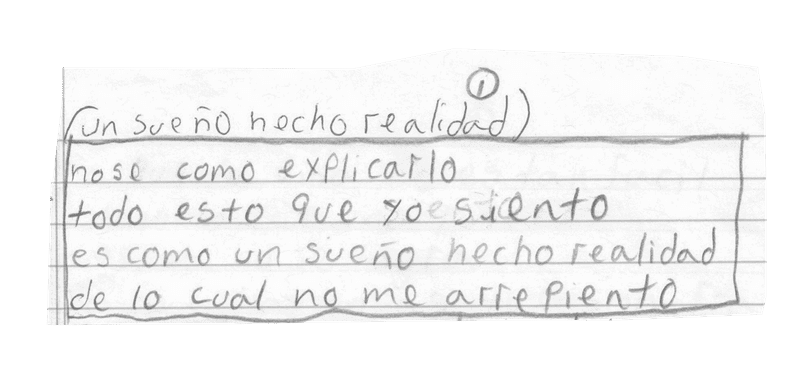 ①
(un sueño hecho realidad)
nose como explicarlo
todo esto que yo siento
es como un sueño hecho realidad
de lo cual no me arrepiento